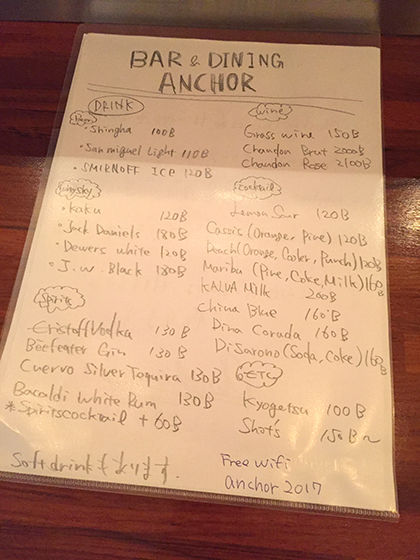 BAR & DINING
ANCHOR
DRINK
Beer
・Shingha 100B
・San miguel Light 110B
・SMIRNOFF ICE 120B
Whysky
・Kaku 120B
・Jack Daniels 180B
・Dewers white 120B
・J.W. Black 180B
Spirits
Eristoff Vodka 130B
Beefeater Gin 130B
Cuervo Silver Tequira 130B
Bacaldi White Rum 130B
*Spiritscocktail + 60B
Soft drinkもあります.
Wine
Grass wine 150B
Chandon Brut 2000B
Chandon Rose 2100B
Cocktail
Lemon Sour 120B
Cassis (Orange, Pine) 120B
Peach (Orange, Cooler, Punch) 120B
Maribu (Pine, Coke, Milk) 160B
KALUA Milk 200B
China Blue 160B
Pina Coruda 160B
DiSarono (Soda, Coke) 160B
ETC
Kyogetsu 100B
Shots 150B~
Free Wifi
anchor 2017